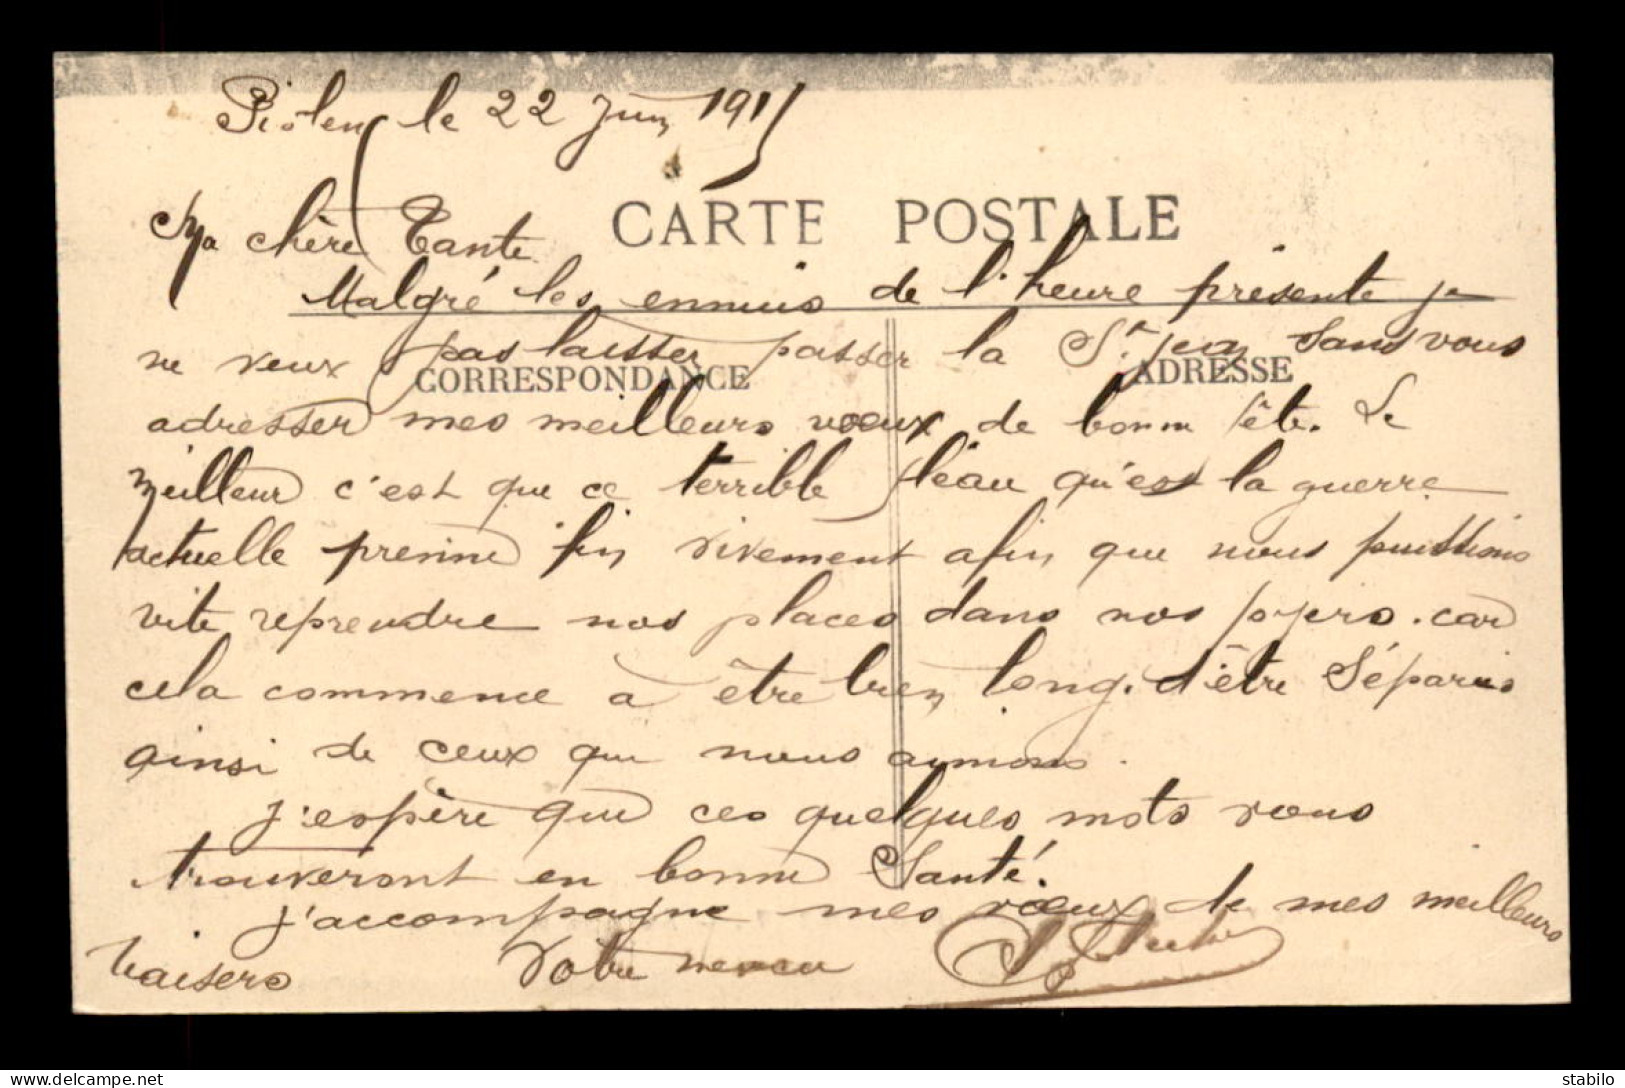 Piolenc le 22 Juin 1915
CARTE POSTALE
Ma chère Tante
Malgré les ennuis de l'heure présente je
ne veux pas laisser passer la St Jean sans vous
CORRESPONDANCE ADRESSE
adresser mes meilleurs vœux de bonne fête. Le
meilleur c'est que ce terrible fléau qu'est la guerre
actuelle prenne fin vivement afin que nous puissions
vite reprendre nos places dans nos foyers. car
cela commence à être bien long. d'être séparés
ainsi de ceux que nous aimons.
J'espère que ces quelques mots vous
trouveront en bonne Santé.
J'accompagne mes vœux de mes meilleurs
baisers Votre neveu
stabilo